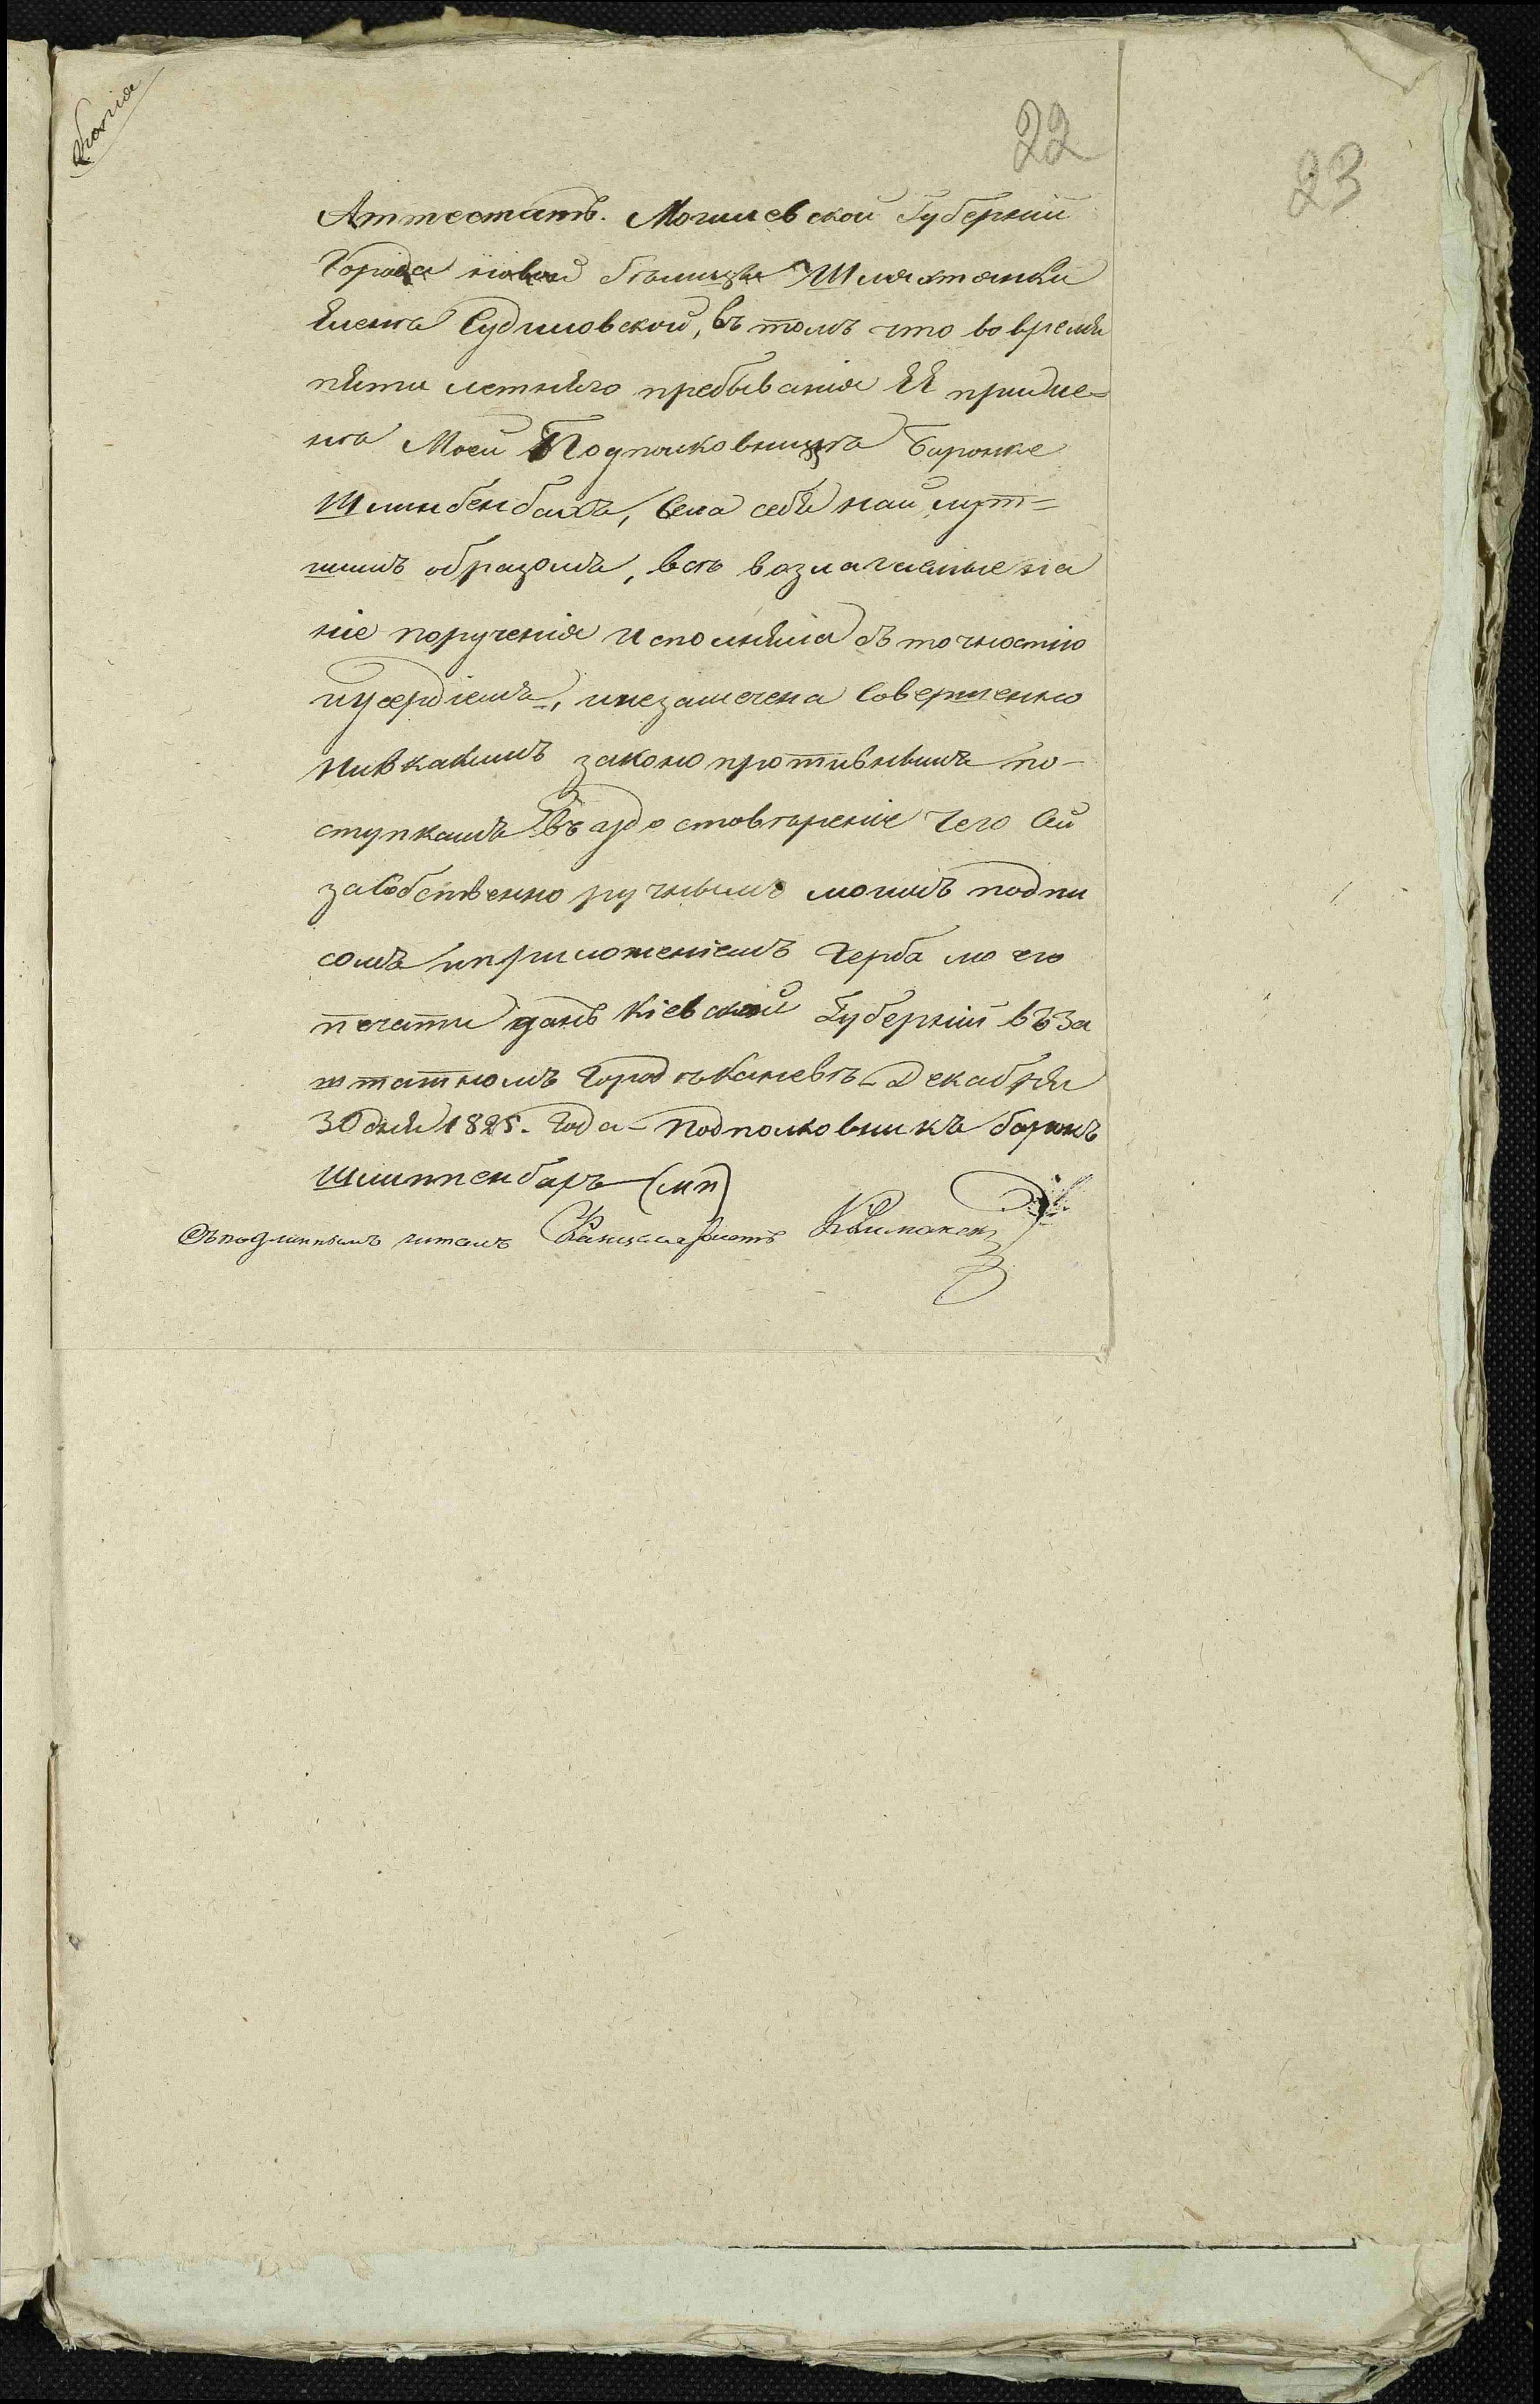 Копія
22
23
Аттестатъ. Могилевской Губерніи
Города новой бѣлицы Шляхтянки
Елены Судиловской, въ томъ что во время
пяти летняго пребыванія ЕЯ при же-
нѣ Моей Подполковницѣ Баронке
Шлинбенбахъ, вела себя най лут-
шимъ образомъ, всѣ возлагаемые на
нїе порученія исполняла съ точностію
иусердіемъ, инезамечена Совершенно
нивкакимъ законопротивнымъ по-
ступкамъ въ удостовѣреніе Чего Сей
за Собственно ручнымъ моимъ подпи
сомъ иприложеніемъ Герба моего
печати данъ Кіевской Губерніи въ За
штатномъ Городѣ Каневѣ Декабря
30 дня 1825. Года - Подполковникъ баронъ
Шлиппенбахъ (мп)
Съподлиннымъ читалъ Канцеляристъ